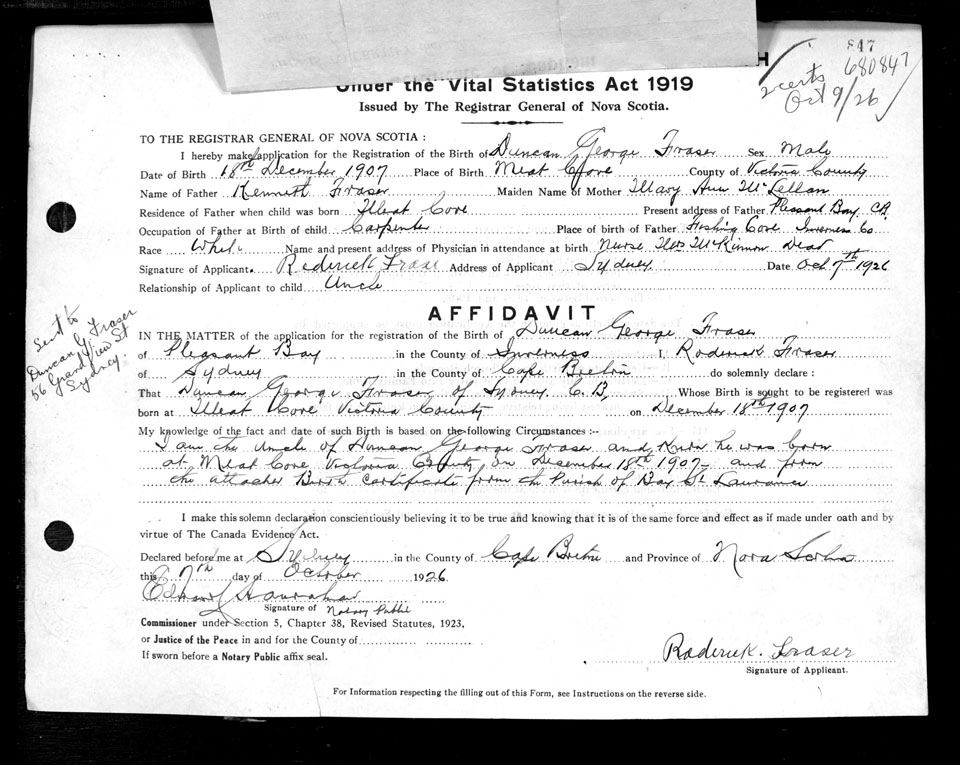 H
847
680847
2 certs
Oct 9/26
Under the Vital Statistics Act 1919
Issued by The Registrar General of Nova Scotia.
TO THE REGISTRAR GENERAL OF NOVA SCOTIA :
I hereby make application for the Registration of the Birth of Duncan George Fraser Sex Male
Date of Birth 18th December 1907 Place of Birth Meat Cove County of Victoria County
Name of Father Kenneth Fraser Maiden Name of Mother Mary Ann McLellan
Residence of Father when child was born Meat Cove Present address of Father Pleasant Bay, CB
Occupation of Father at Birth of child Carpenter Place of birth of Father Fishing Cove Inverness Co
Race White Name and present address of Physician in attendance at birth Nurse McKinnon Dead
Signature of Applicant. Roderick Fraser Address of Applicant Sydney Date Oct 7th 1926
Relationship of Applicant to child Uncle
AFFIDAVIT
Sent to
Duncan G Fraser
56 Grand View St
Sydney.
IN THE MATTER of the application for the registration of the Birth of Duncan George Fraser
of Pleasant Bay in the County of Inverness I, Roderick Fraser
of Sydney in the County of Cape Breton do solemnly declare :
That Duncan George Fraser of Sydney C.B, Whose Birth is sought to be registered was
born at Meat Cove Victoria County on December 18th 1907
My knowledge of the fact and date of such Birth is based on the following Circumstances :-
I am the Uncle of Duncan George Fraser and Know he was born
at Meat Cove Victoria County on December 18th 1907 and from
the attached Birth Certificate from the Parish of Bay St Laurance
I make this solemn declaration conscientiously believing it to be true and knowing that it is of the same force and effect as if made under oath and by
virtue of The Canada Evidence Act.
Declared before me at Sydney in the County of Cape Breton and Province of Nova Scotia
this 7th day of October 1926
Signature of Notary Public
Commissioner under Section 5, Chapter 38, Revised Statutes, 1923,
or Justice of the Peace in and for the County of
If sworn before a Notary Public affix seal.
Roderick. Fraser
Signature of Applicant.
For Information respecting the filling out of this Form, see Instructions on the reverse side.